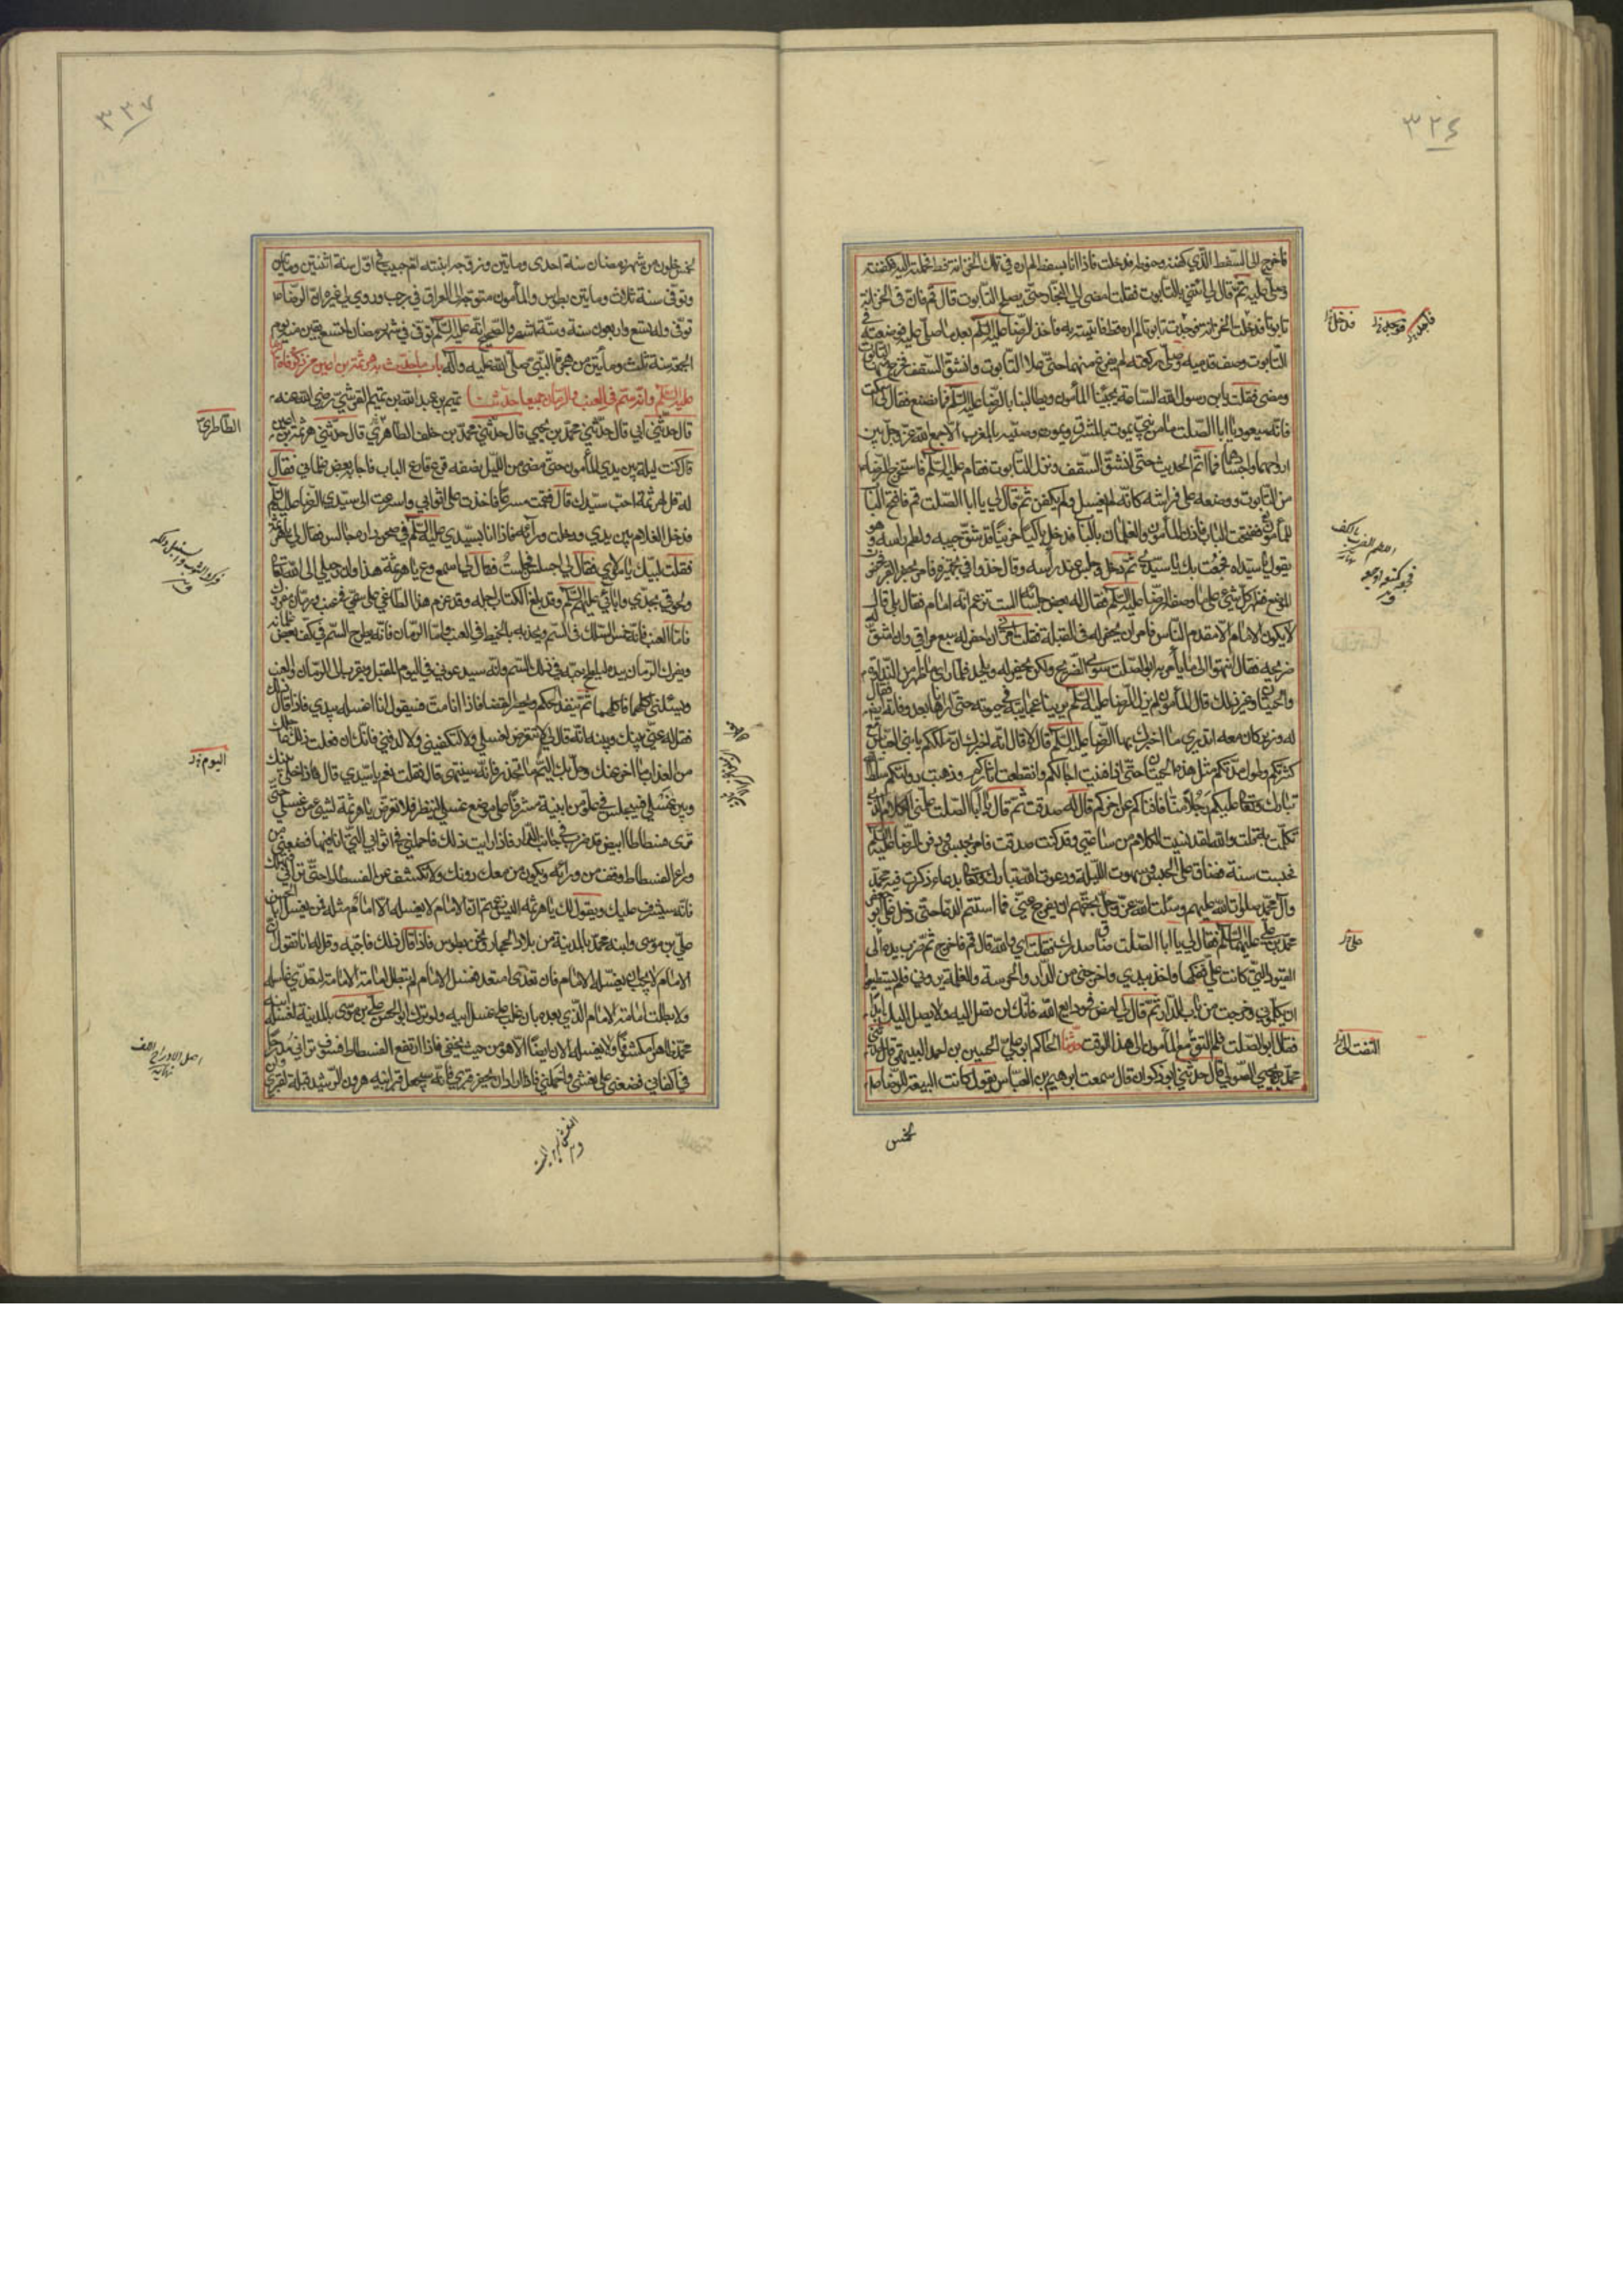 ٣٢٤
فاخرج الى السفط الذي كفنه وحنوطه فدخلت فاذا انا بسفط لم اره في تلك الخزانة قط فحملته اليه فكفنه
وصلى عليه ثم قال لي ائتني بالتابوت فقلت امضي الى النجار حتى يصلح التابوت قال قم فان في الخزانة
تابوتا فدخلت الخزانة فوجدت تابوتا لم اره قط فاتيته به فاخذ الرضا عليه السلم بعد ما صلى عليه فوضعه في
التابوت وصف قدميه وصلى ركعتين لم يفرغ منهما حتى علا التابوت وانشق السقف فخرج منها التابوت
ومضى فقلت يابن رسول الله الساعة يجيئنا المأمون ويطالبنا بالرضا عليه السلم فما نصنع فقال لي اسكت
فانه سيعود يا ابا الصلت ما من نبي يموت بالمشرق ويموت وصيه بالمغرب الا جمع الله عز وجل بين
ارواحهما واجسادهما فما اتم الحديث حتى انشق السقف ونزل التابوت فقام عليه السلم فاستخرج الرضا
من التابوت ووضعه على فراشه كانه لم يغسل ولم يكفن ثم قال لي يا ابا الصلت قم فافتح الباب
للمأمون ففتحت الباب فاذا المأمون والغلمان بالباب فدخل باكيا حزينا قد شق جيبه ولطم رأسه وهو
يقول يا سيداه فجعت بك يا سيدي ثم دخل وجلس عند رأسه وقال خذوا في تجهيزه فامر بحفر القبر فحفرت
الموضع فظهر كل شيء على ما وصفه الرضا عليه السلم فقال له بعض جلسائه الست تزعم انه امام فقال بلى قال
لا يكون الامام الا مقدم الناس فامر ان يحفر له في القبلة فقلت امرني ان احفر له سبع مراقي وان اشق له
ضريحه فقال انتهوا الى ما يأمر به ابو الصلت سوى الضريح ولكن يحفر له ويلحد فلما رأى ما ظهر من النداوة
والحيتان وغير ذلك قال المأمون لم يزل الرضا عليه السلم يرينا عجائبه في حيوته حتى اراناها بعد وفاته ايضا فقال
له وزير كان معه اتدري ما اخبرك به الرضا عليه السلم قال لا قال انه اخبرك ان ملككم يا بني العباس مع
كثرتكم وطول مدتكم مثل هذه الحيتان حتى اذا فنيت اجالكم وانقطعت اثاركم وذهبت دولتكم سلط الله
تبارك وتعالى عليكم رجلا منا فافناكم عن اخركم قال له صدقت ثم قال يا ابا الصلت علمني الكلام الذي
تكلمت به قلت والله لقد نسيت الكلام من ساعتي وقد كنت صدقت فامر بحبسي ودفن الرضا عليه السلم
فحبست سنة فضاق علي الحبس وسهرت الليلة ودعوت الله تبارك وتعالى بدعاء ذكرت فيه محمد
وآل محمد صلوات الله عليهم وسئلت الله عز وجل بحقهم ان يفرج عني فما استتم الدعا حتى دخل علي ابو جعفر
محمد بن علي عليهما السلم فقال لي يا ابا الصلت ضاق صدرك فقلت اي والله قال قم فاخرج ثم ضرب يده الى
القيود التي كانت علي ففكها واخذ بيدي واخرجني من الدار والحرسة والغلمة يرونني فلم يستطيعوا
ان يكلموني وخرجت من باب الدار ثم قال لي امض في ودايع الله فانك لن تصل اليه ولا يصل اليك ابدا
فقال ابو الصلت فلم التق مع المأمون الى هذا الوقت حدثنا الحاكم ابو علي الحسين بن احمد البيهقي قال حدثني
محمد بن يحيى الصولي قال حدثني ابو ذكوان قال سمعت ابرهيم بن العباس يقول كانت البيعة للرضا
لخمس
فدخل
علي
٣٢٧
لخمس خلون من شهر رمضان سنة احدى ومايتين وزوجه ابنته ام حبيب في اول سنة اثنتين ومايتين
وتوفى سنة ثلاث ومايتين بطوس والمأمون متوجه الى العراق في رجب وروى لي غيره ان الرضا
توفى وله تسع واربعون سنة وستة اشهر والصحيح انه عليه السلم توفى في شهر رمضان لتسع بقين منه يوم
الجمعة سنة ثلث ومأتين من هجرة النبي صلى الله عليه وآله باب ما حدث به هرثمة بن اعين من ذكر وفاة الرضا
عليه السلم وانه سم في العنب والرمان جميعا حدثنا تميم بن عبد الله بن تميم القرشي رضي الله عنه
قال حدثني ابي قال حدثني محمد بن يحيى قال حدثني محمد بن خلف الطاهري قال حدثني هرثمة بن اعين
قال كنت ليلة بين يدي المأمون حتى مضى من الليل نصفه قرع قارع الباب فاجابه بعض غلماني فقال
له قل لهرثمة اجب سيدك قال فقمت مسرعا فاخذت علي اثوابي واسرعت الى سيدي الرضا عليه السلم
فدخل الغلام بين يدي ودخلت ورآئه فاذا انا بسيدي عليه السلم في صحن داره جالس فقال لي يا هرثمة
فقلت لبيك يا مولاي فقال لي اجلس فجلست فقال لي اسمع وع يا هرثمة هذا اوان رحيلي الى الله تعالى
ولحوقي بجدي وابائي عليهم السلم وقد بلغ الكتاب اجله وقد عزم هذا الطاغي على سمي في عنب ورمان مفروك
فاما العنب فانه يغمس السلك في السم ويجذبه بالخيط في العنب واما الرمان فانه يطرح السم في كف بعض غلمانه
ويفرك الرمان بيده ليلطخ حبه في ذلك السم وانه سيدعوني في اليوم المقبل ويقرب الى الرمان والعنب
ويسئلني اكلها فاكلهما ثم ينفذ الحكم ويحضر القضا فاذا انا مت فسيقول انا اغسله بيدي فاذا قال ذلك
فقل له عني بينك وبينه انه قال لي لا تتعرض لغسلي ولا لتكفيني ولا لدفني فانك ان فعلت ذلك عاجلك
من العذاب ما اخر عنك وحل بك اليم ما تحذر فانه سينتهي قال فقلت نعم يا سيدي قال فاذا خلى بينك
وبين غسلي فيجلس في علو من ابنية مشرفا على موضع غسلي لينظر فلا تعرض يا هرثمة لشيء من غسلي حتى
ترى فسطاطا ابيض قد ضرب في جانب الدار فاذا رايت ذلك فاحملني في اثوابي التي انا فيها فضعني من
وراء الفسطاط وقف من ورائه ويكون من معك دونك ولا تكشف عن الفسطاط حتى تراني فتهلك
فانه سيشرف عليك ويقول لك يا هرثمة اليس زعمتم ان الامام لا يغسله الا امام مثله فمن يغسل ابا الحسن
علي بن موسى وابنه محمد بالمدينة من بلاد الحجاز ونحن بطوس فاذا قال ذلك فاجبه وقل له انا نقول ان
الامام لا يجب ان يغسله الا امام فان تعدى متعد فغسل الامام لم تبطل امامة الامامة لتعدي غاسله
ولا بطلت امامة الامام الذي بعده بان غلب على غسل ابيه ولو ترك ابو الحسن علي بن موسى بالمدينة لغسله ابنه
محمد ظاهرا مكشوفا ولا يغسله الان ايضا الا هو من حيث يخفى فاذا ارتفع الفسطاط فسوف تراني مدرجا
في اكفاني فضعني على نعشي واحملني فاذا اراد ان يحفر قبري فانه سيجعل قبر ابيه هرون الرشيد قبلة لقبري
الطاطري
اليوم